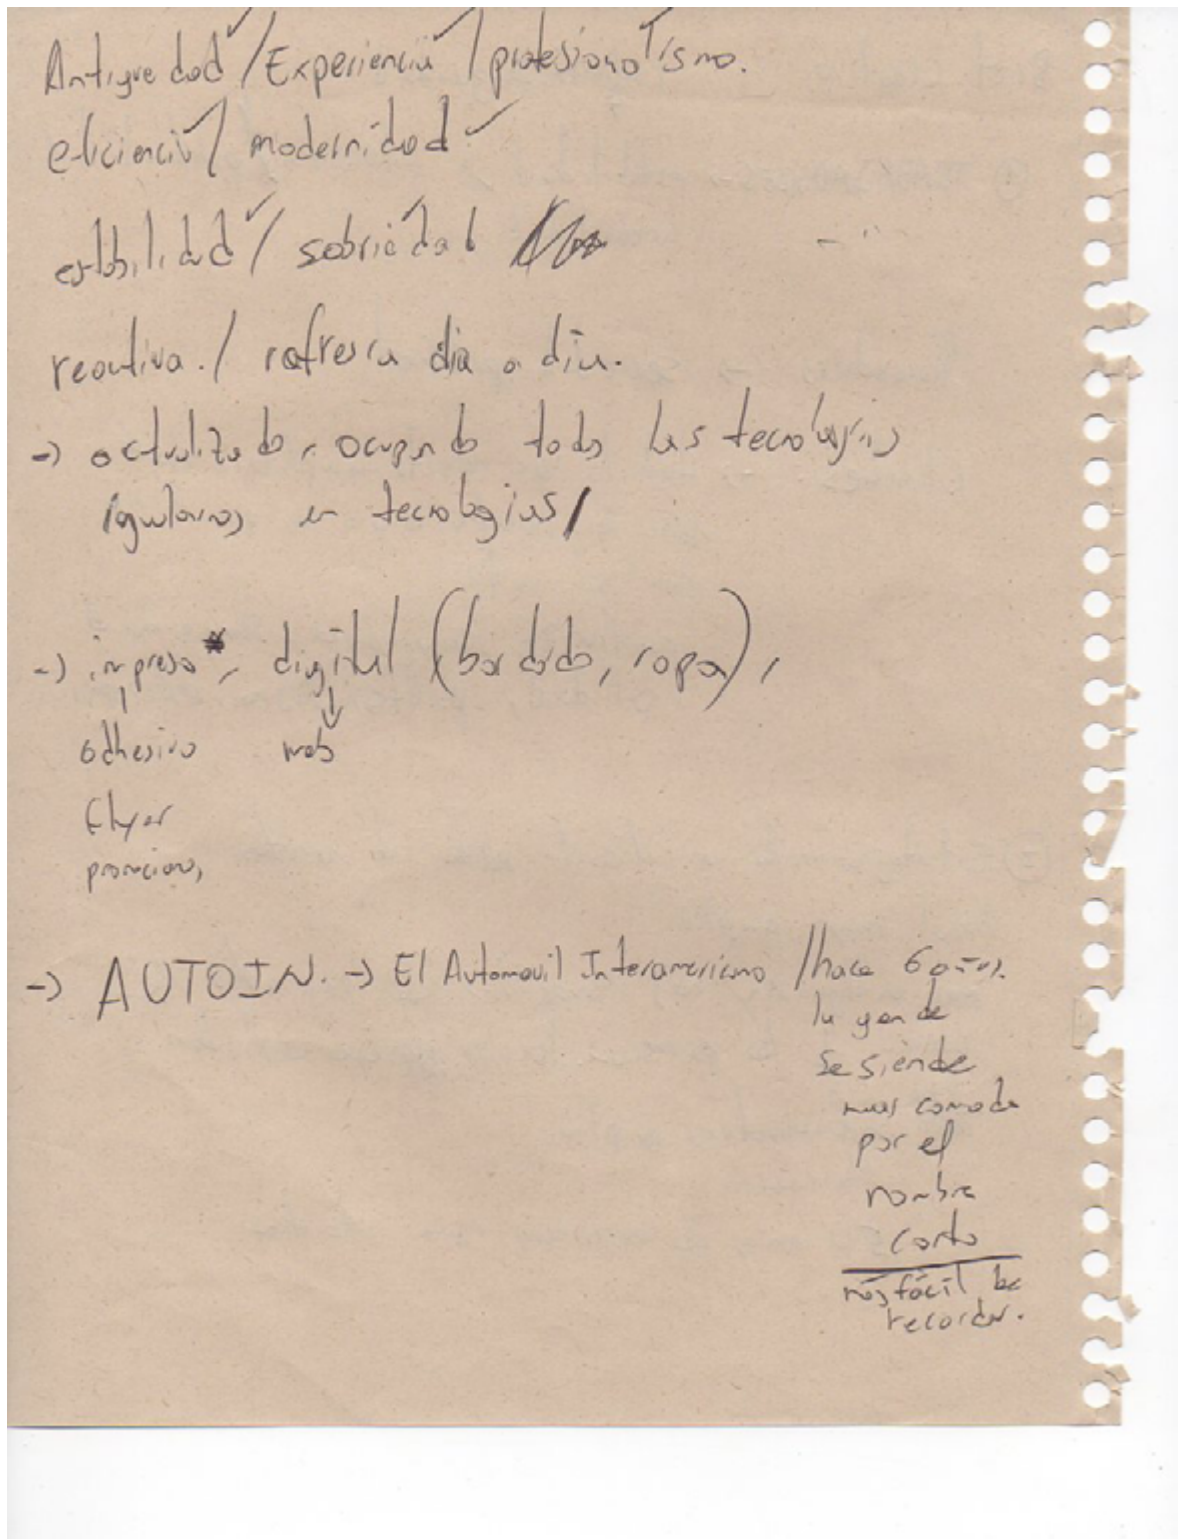 Antiguedad / Experiencia / profesionalismo.
eficiencia / modernidad
estabilidad / sobriedad
reactiva. / refresca dia a dia.
-> actualizado, ocupando todas las tecnologias
en tecnologias /
-> impreso*, digital (bordado, ropa),
adhesivo web
flyer
-> AUTOIN. -> El Automovil Interamericano / hace 6 años.
la gende
se siende
muy comoda
por el
nombre
corto
más fácil de
recordar.